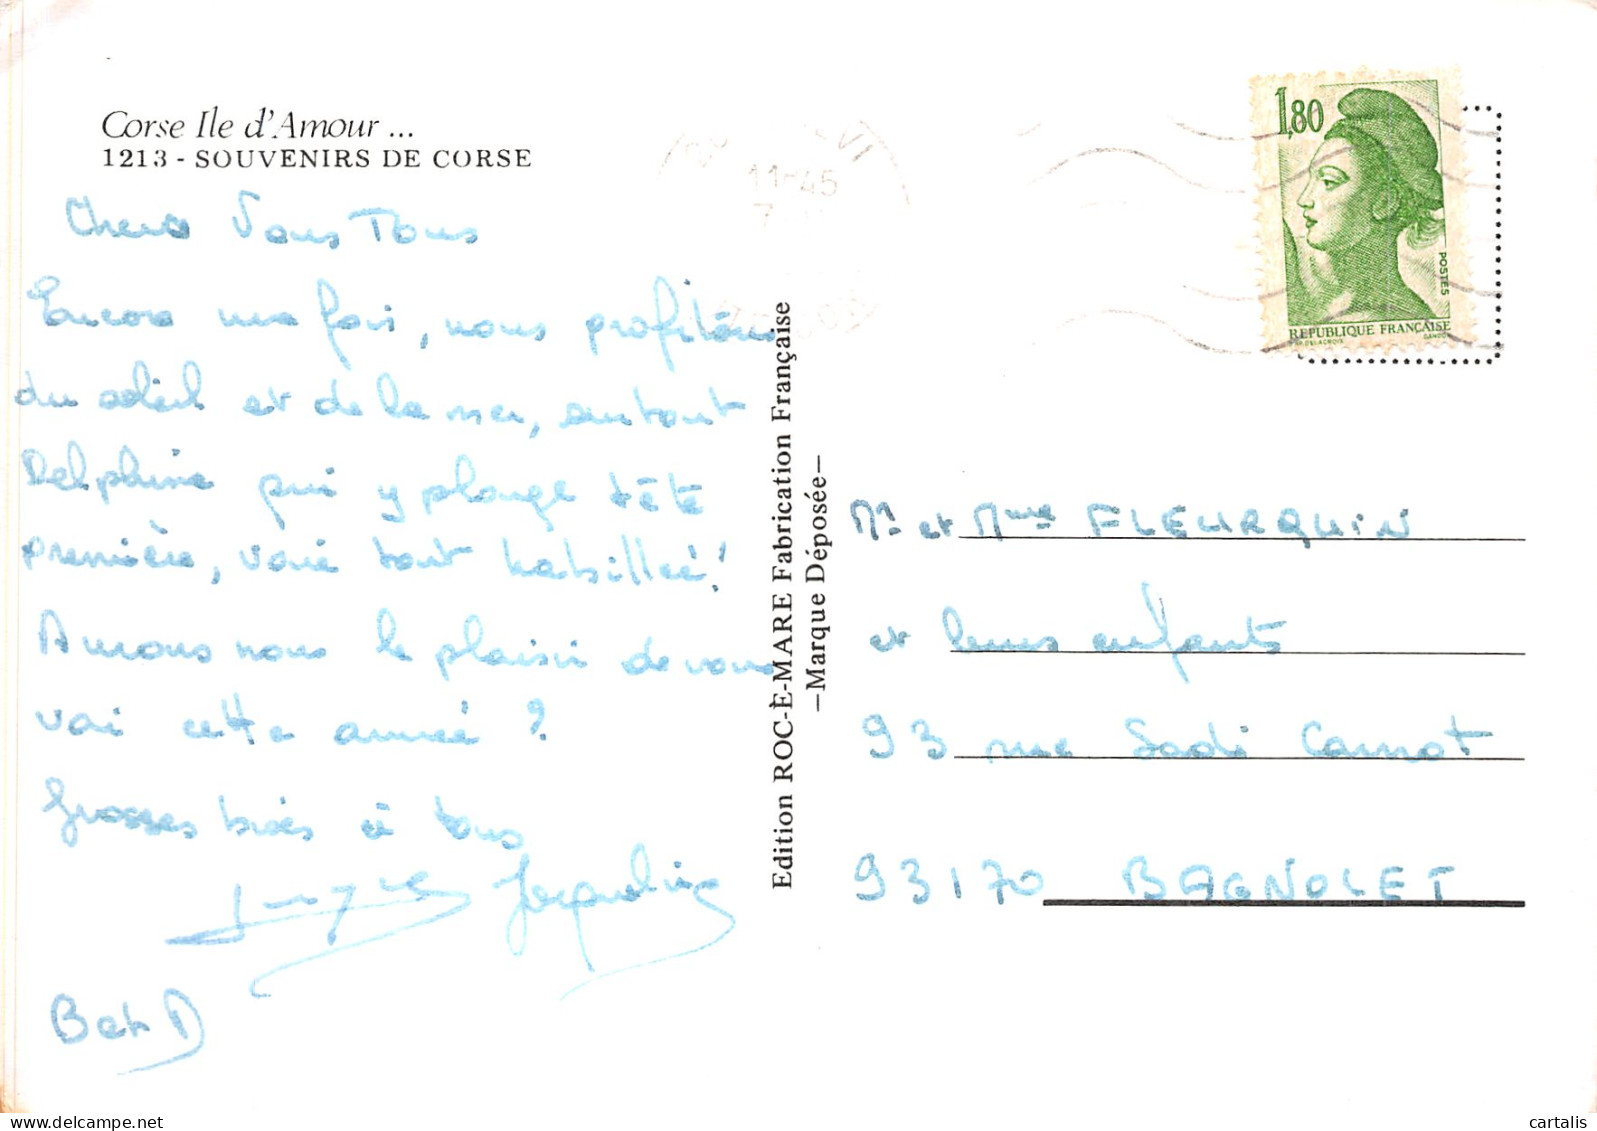 Corse Ile d'Amour ...
1213 - SOUVENIRS DE CORSE
Chers Vous Tous
Encore une fois, nous profitons
du soleil et de la mer, surtout
Delphine qui y plonge tête
première, voire tout habillée!
Aurons nous le plaisir de vous
voir cette année ?
Grosses bises à tous
Jacqueline
B et D
Edition ROC-E-MARE Fabrication Française
—Marque Déposée—
11-45
1,80
POSTES
REPUBLIQUE FRANÇAISE
DELACROIX
GANDON
Mr et Mme FLEURQUIN
et leurs enfants
93 rue Sadi Carnot
93170 BAGNOLET
cartalis